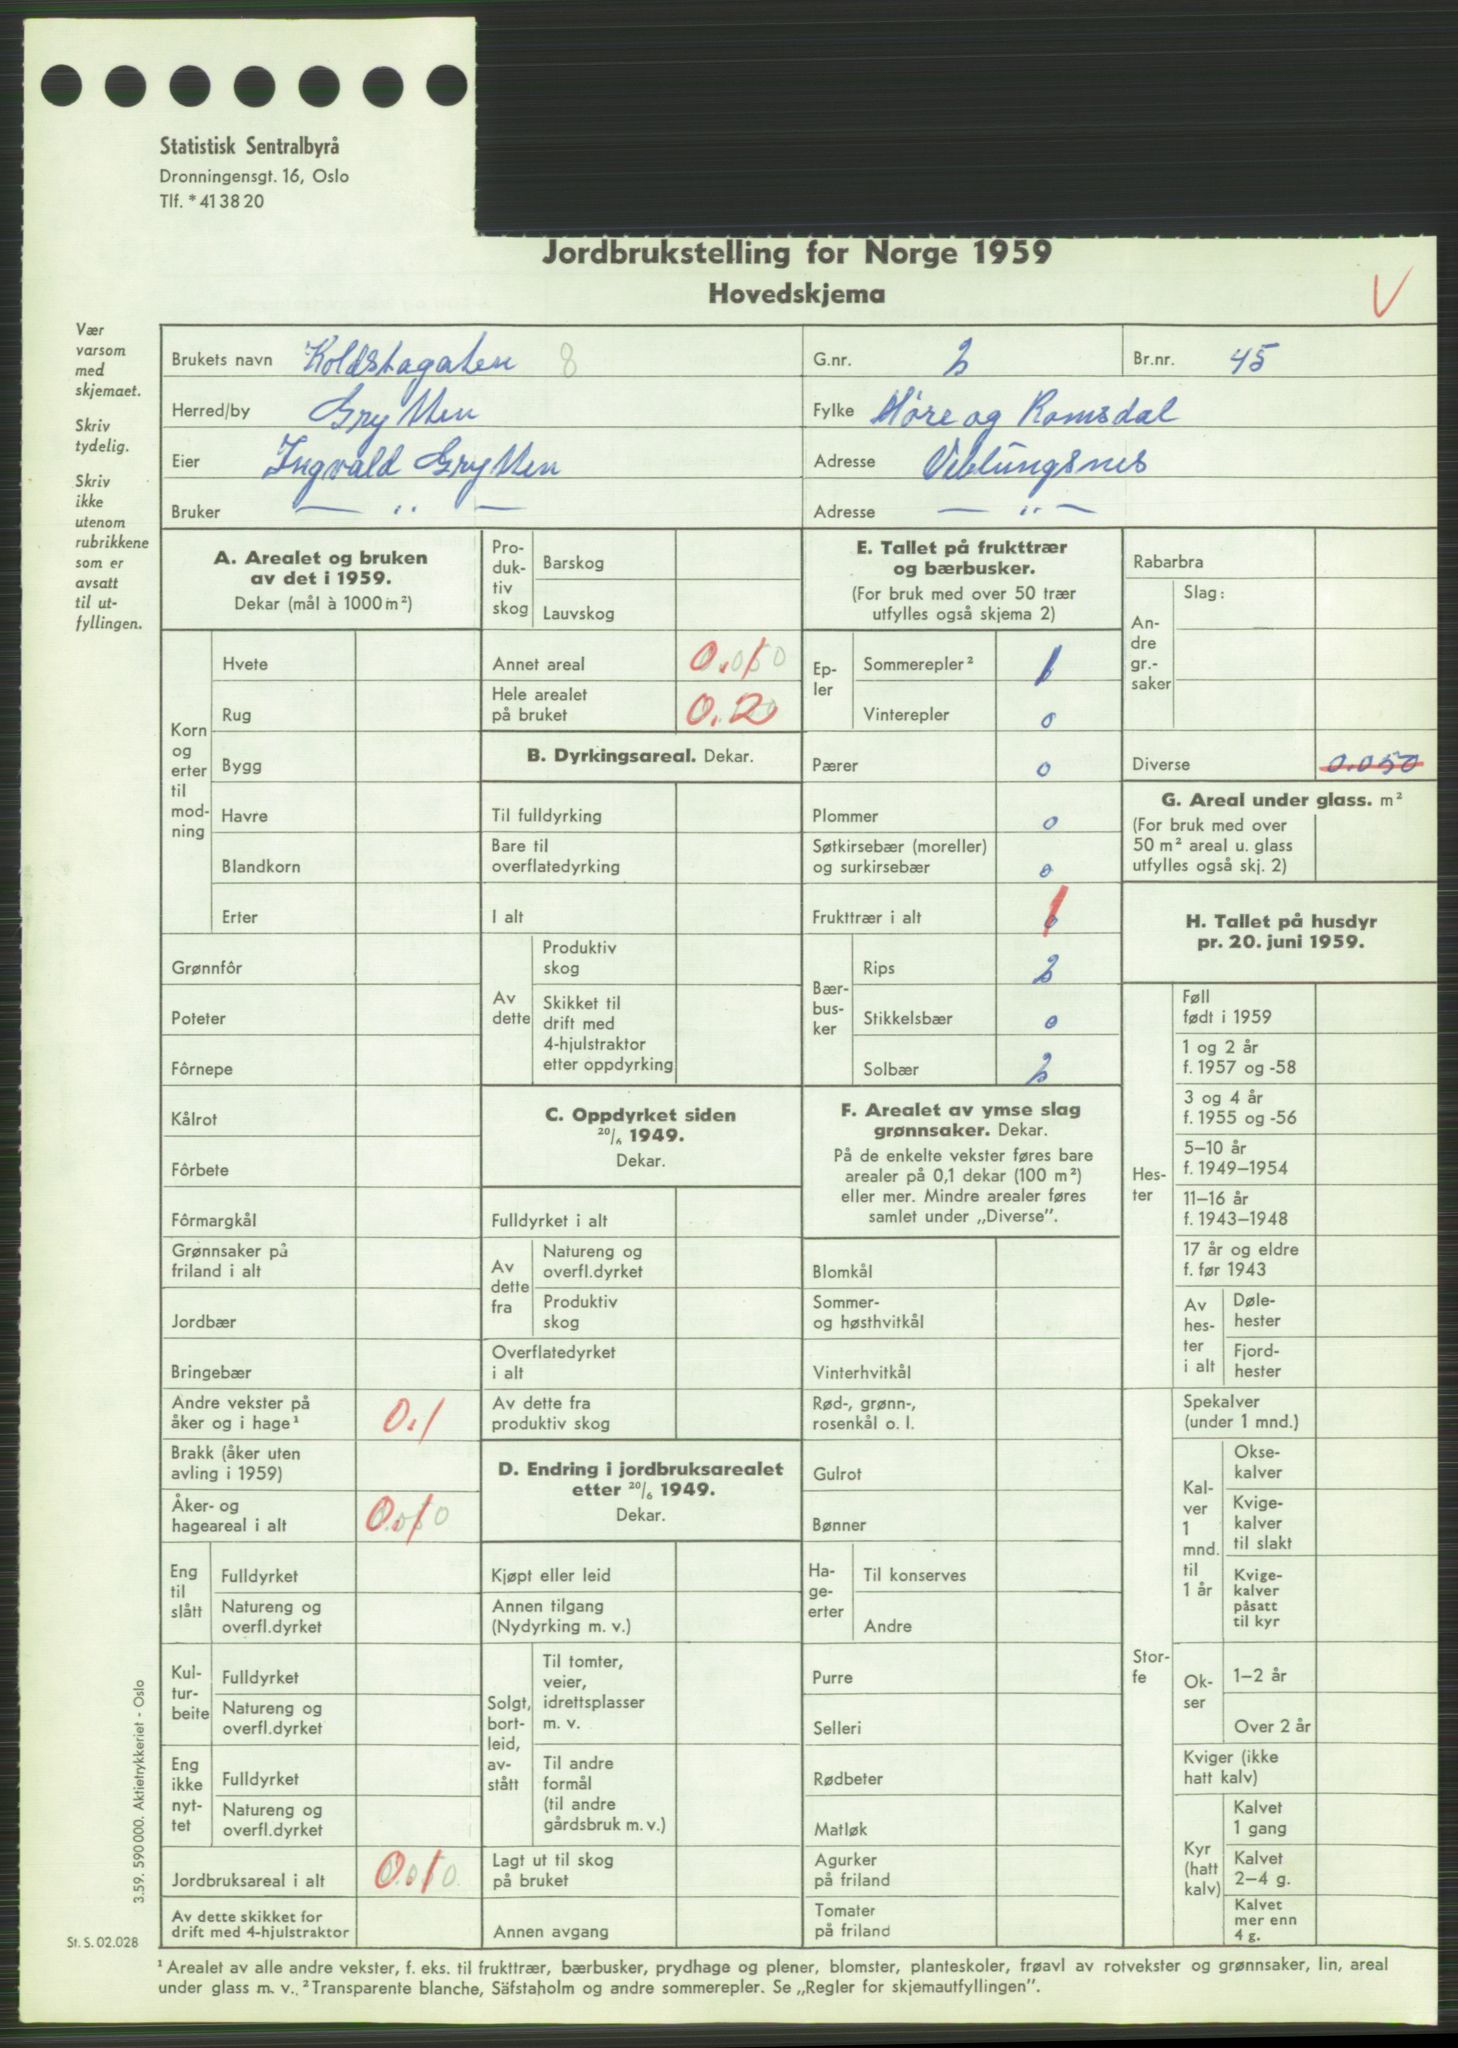 Statistisk Sentralbyrå
Dronningensgt. 16, Oslo
Tlf. * 41 38 20
Jordbrukstelling for Norge 1959
Hovedskjema
V
Vær
varsom
med
skjemaet.
Skriv
tydelig.
Skriv
ikke
utenom
rubrikkene
som er
avsatt
til ut-
fyllingen.
Brukets navn Koldstagaten 8 G.nr. 2 Br.nr. 45
Herred/by Grytten Fylke Møre og Romsdal
Eier Ingvald Grytten Adresse Veblungsnes
Bruker — " — Adresse — " —
A. Arealet og bruken
av det i 1959.
Dekar (mål à 1000 m²)
Korn
og
erter
til
mod-
ning
Hvete
Rug
Bygg
Havre
Blandkorn
Erter
Grønnfôr
Poteter
Fôrnepe
Kålrot
Fôrbete
Fôrmargkål
Grønnsaker på
friland i alt
Jordbær
Bringebær
Andre vekster på
åker og i hage¹ 0.1
Brakk (åker uten
avling i 1959)
Åker- og
hageareal i alt 0.050 0.1
Eng
til
slått
Fulldyrket
Natureng og
overfl.dyrket
Kul-
tur-
beite
Fulldyrket
Natureng og
overfl.dyrket
Eng
ikke
nyt-
tet
Fulldyrket
Natureng og
overfl.dyrket
Jordbruksareal i alt 0.050 0.1
Av dette skikket for
drift med 4-hjulstraktor
Pro-
duk-
tiv
skog
Barskog
Lauvskog
Annet areal 0.050 0.1
Hele arealet
på bruket 0.2
B. Dyrkingsareal. Dekar.
Til fulldyrking
Bare til
overflatedyrking
I alt
Av
dette
Produktiv
skog
Skikket til
drift med
4-hjulstraktor
etter oppdyrking
C. Oppdyrket siden
20/6 1949.
Dekar.
Fulldyrket i alt
Av
dette
fra
Natureng og
overfl.dyrket
Produktiv
skog
Overflatedyrket
i alt
Av dette fra
produktiv skog
D. Endring i jordbruksarealet
etter 20/6 1949.
Dekar.
Kjøpt eller leid
Annen tilgang
(Nydyrking m. v.)
Solgt,
bort-
leid,
av-
stått
Til tomter,
veier,
idrettsplasser
m. v.
Til andre
formål
(til andre
gårdsbruk m. v.)
Lagt ut til skog
på bruket
Annen avgang
E. Tallet på frukttrær
og bærbusker.
(For bruk med over 50 trær
utfylles også skjema 2)
Ep-
ler
Sommerepler² 1
Vinterepler 0
Pærer 0
Plommer 0
Søtkirsebær (moreller)
og surkirsebær 0
Frukttrær i alt 1
Bær-
bus-
ker
Rips 2
Stikkelsbær 0
Solbær 2
F. Arealet av ymse slag
grønnsaker. Dekar.
På de enkelte vekster føres bare
arealer på 0,1 dekar (100 m²)
eller mer. Mindre arealer føres
samlet under „Diverse”.
Blomkål
Sommer-
og høsthvitkål
Vinterhvitkål
Rød-, grønn-,
rosenkål o. l.
Gulrot
Bønner
Ha-
ge-
erter
Til konserves
Andre
Purre
Selleri
Rødbeter
Matløk
Agurker
på friland
Tomater
på friland
Rabarbra
An-
dre
gr.-
saker
Slag:
Diverse 0.050
G. Areal under glass. m²
(For bruk med over
50 m² areal u. glass
utfylles også skj. 2)
H. Tallet på husdyr
pr. 20. juni 1959.
Hes-
ter
Føll
født i 1959
1 og 2 år
f. 1957 og -58
3 og 4 år
f. 1955 og -56
5–10 år
f. 1949–1954
11–16 år
f. 1943–1948
17 år og eldre
f. før 1943
Av
hes-
ter
i alt
Døle-
hester
Fjord-
hester
Stor-
fe
Spekalver
(under 1 mnd.)
Kal-
ver
1
mnd.
til
1 år
Okse-
kalver
Kvige-
kalver
til slakt
Kvige-
kalver
påsatt
til kyr
Ok-
ser
1–2 år
Over 2 år
Kviger (ikke
hatt kalv)
Kyr
(hatt
kalv)
Kalvet
1 gang
Kalvet
2–4 g.
Kalvet
mer enn
4 g.
3.59. 590 000. Aktietrykkeriet - Oslo
St. S. 02.028
¹ Arealet av alle andre vekster, f. eks. til frukttrær, bærbusker, prydhage og plener, blomster, planteskoler, frøavl av rotvekster og grønnsaker, lin, areal
under glass m. v. ² Transparente blanche, Säfstaholm og andre sommerepler. Se „Regler for skjemautfyllingen”.